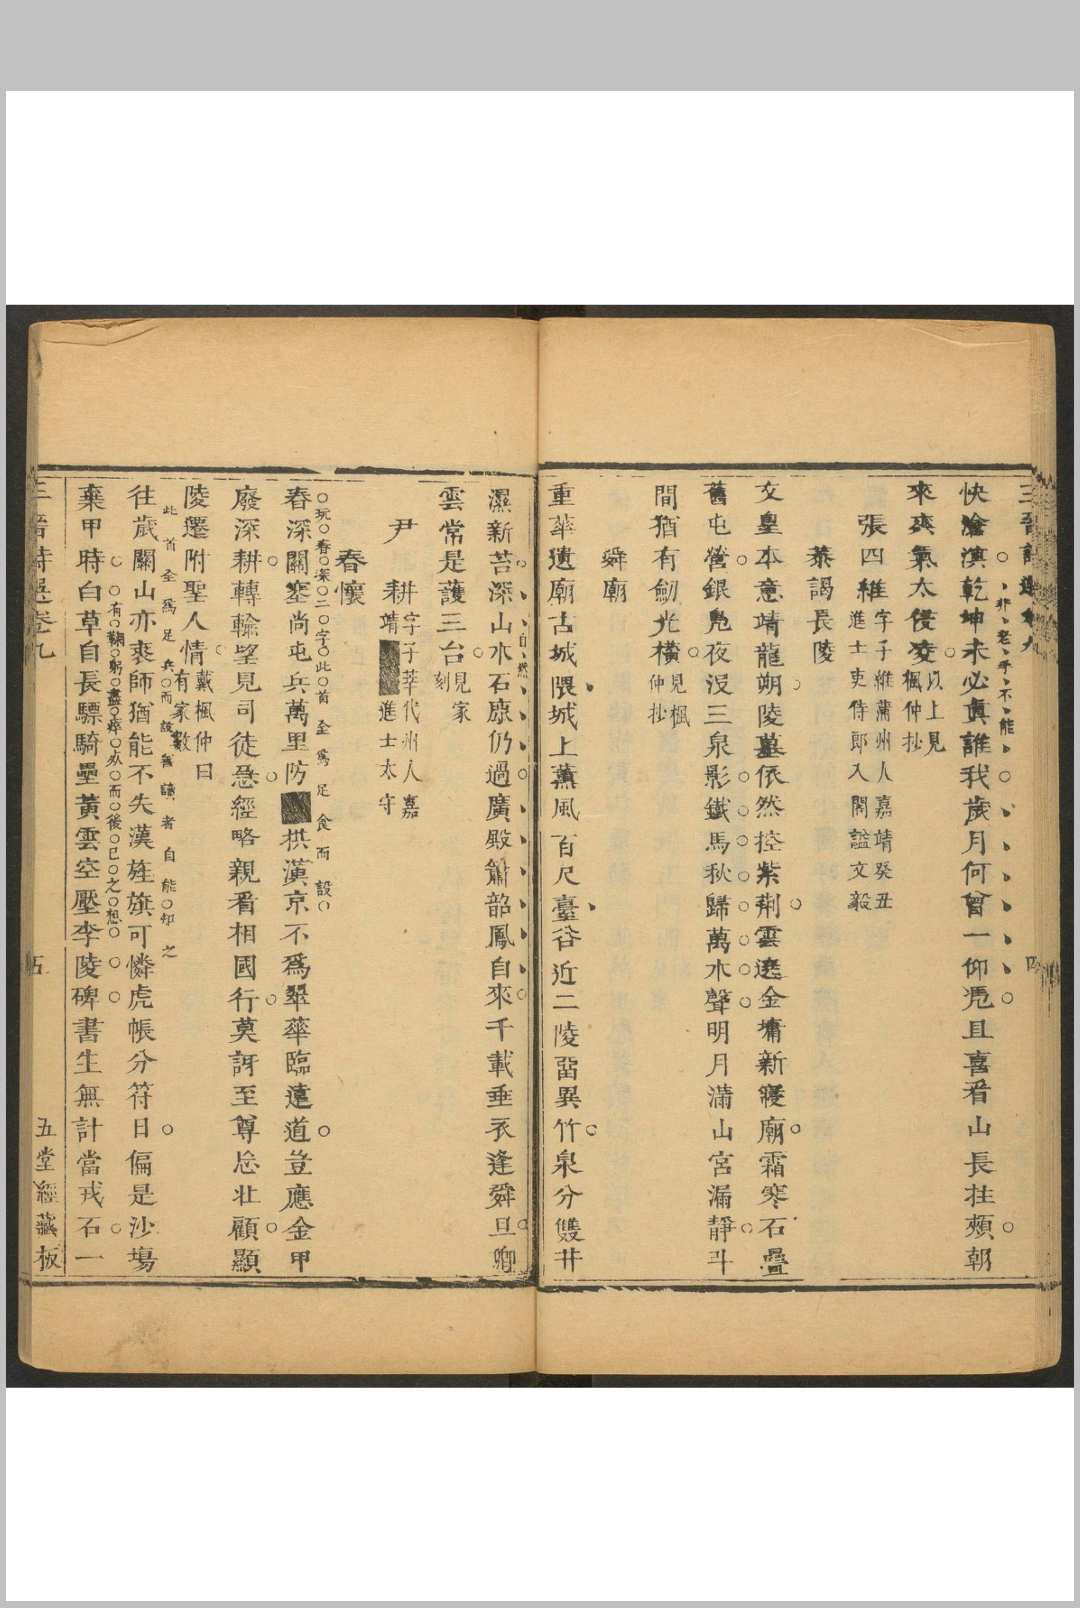 三晉詩選卷九
四
快滄溟乾坤未必眞誰我歲月何曾一仰凭且喜看山長拄頰朝
非老手不能
來爽氣太侵凌以上見楓仲抄
張四維字子維蒲州人嘉靖癸丑進士吏侍郎入閣謚文毅
恭謁長陵
文皇本意靖龍朔陵墓依然控紫荊雲遶金墉新寢廟霜寒石疊
舊屯營銀鳧夜沒三泉影鐵馬秋歸萬木聲明月滿山宮漏靜斗
間猶有劒光橫見楓仲抄
舜廟
重華遺廟古城隈城上薰風百尺臺谷近二陵畱異竹泉分雙井
濕新苔深山木石原仍過廣殿簫韶鳳自來千載垂衣逢舜旦卿
自然
雲常是護三台見家刻
尹耕字子莘代州人嘉靖進士太守
春懷
玩春深二字此首全爲足食而設
春深關塞尚屯兵萬里防拱漢京不爲翠華臨遠道豈應金甲
廢深耕轉輸望見司徒急經略親看相國行莫訝至尊忘壯顧顯
陵遷附聖人情戴楓仲曰有家數
此首全爲足兵而設舊讀者自能知之
往歲關山亦喪師猶能不失漢旌旗可憐虎帳分符日偏是沙塲
有鞠躬盡瘁死而後已之想
棄甲時白草自長驃騎壘黃雲空壓李陵碑書生無計當戎石一
三晉詩選卷九
五
五堂經藏板